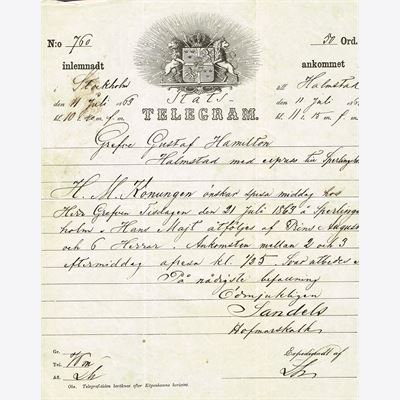 N:o 760
50 Ord.
inlemnadt
ankommet
i Stockholm
till Halmstad
den 11 Juli 1863
den 11 Juli 186
kl. 10 m. f. m.
kl. 11 t. 15 m. f. m.
Stats-
TELEGRAM.
Grefve Gustaf Hamilton
Halmstad med express till
H. M. Konungen önskar spisa middag hos
Herr Grefven Tisdagen den 21 Juli 1863 å Sperlings-
holm. Hans Majt åtföljes af Prins August
och 6 Herrar. Ankomsten mellan 2 och 3
eftermiddag afresa kl. 725. Svar utbedes
På nådigste befallning
Ödmjukligen
Sandels
Hofmarskalk
Gr.
Tel.
Af.
Expedieradt af
Obs. Telegraf-tiden beräknas efter Köpenhamns horizont.